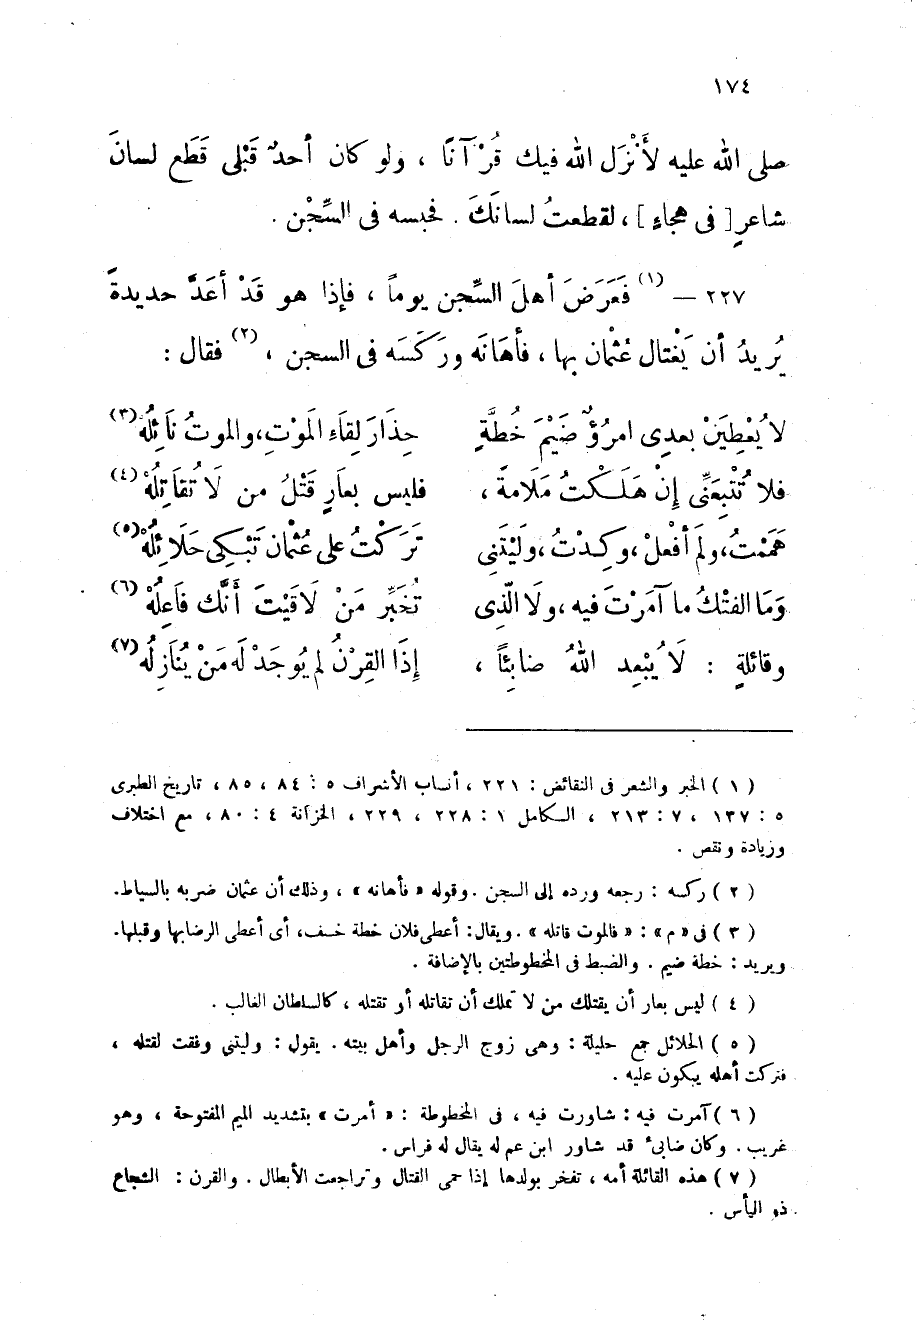 ١٧٤
صلى الله عليه لأَنْزَل الله فيك قُرْآنًا ، ولو كان أحدٌ قَبْلِى قَطَع لسانَ
شاعرٍ [ فى هجاءٍ ] ، لقطعتُ لسانَكَ . فحبسه فى السِّجْن .
٢٢٧ — (١) فَعَرَضَ أهلَ السِّجن يوماً ، فإذا هو قَدْ أعَدَّ حديدةً
يُريدُ أن يَغْتال عُثْمان بها ، فأهَانَه ورَكَسَه فى السجن ، (٢) فقال :
لا يُعْطِيَنْ بعدِى امرُؤٌ ضَيْمَ خُطَّةٍ حِذَارَ لِقَاءِ المَوْتِ،والموتُ نَائِلُهْ (٣)
فلا تُتْبِعَنِّى إنْ هَلَكْتُ مَلَامةً ، فليس بعارٍ قَتْلُ من لَا تُقَاتِلُهْ (٤)
هَمَمْتُ،ولم أفْعل،وكِدْتُ،ولَيْتَنِى تَرَكْتُ على عُثْمان تَبْكِى حَلَائِلُهْ (٥)
وَمَا الفتْكُ ما آمَرْتَ فيه،ولَا الّذِى تُخَبِّر مَنْ لَاقَيْتَ أنَّك فَاعِلُهْ (٦)
وقائلةٍ : لَا يُبْعِد اللهُ ضابِئاً ، إذَا القِرْنُ لم يُوجَدْ لَه مَنْ يُنَازِلُه (٧)
( ١ ) الخبر والشعر فى النقائض : ٢٢١ ، أنساب الأشراف ٥ : ٨٤ ، ٨٥ ، تاريخ الطبرى
٥ : ١٣٧ ، ٧ : ٢١٣ ، الكامل ١ : ٢٢٨ ، ٢٢٩ ، الخزانة ٤ : ٨٠ ، مع اختلاف
وزيادة ونقص .
( ٢ ) ركسه : رجعه ورده إلى السجن . وقوله « فأهانه » ، وذلك أن عثمان ضربه بالسياط.
( ٣ ) فى « م » : « فالموت قاتله » . ويقال : أعطى فلان خطة خسف، أى أعطى الرضا بها وقبلها.
ويريد : خطة ضيم . والضبط فى المخطوطتين بالإضافة .
( ٤ ) ليس بعار أن يقتلك من لا تملك أن تقاتله أو تقتله ، كالسلطان الغالب .
( ٥ ) الحلائل جمع حليلة : وهى زوج الرجل وأهل بيته . يقول : وليتنى وفقت لقتله ،
فتركت أهله يبكون عليه .
( ٦ ) آمرت فيه : شاورت فيه ، فى المخطوطة : « أمرت » بتشديد الميم المفتوحة ، وهو
غريب . وكان ضابىء قد شاور ابن عم له يقال له فراس .
( ٧ ) هذه القائلة أمه ، تفخر بولدها إذا حمى القتال وتراجعت الأبطال . والقرن : الشجاع
ذو البأس .